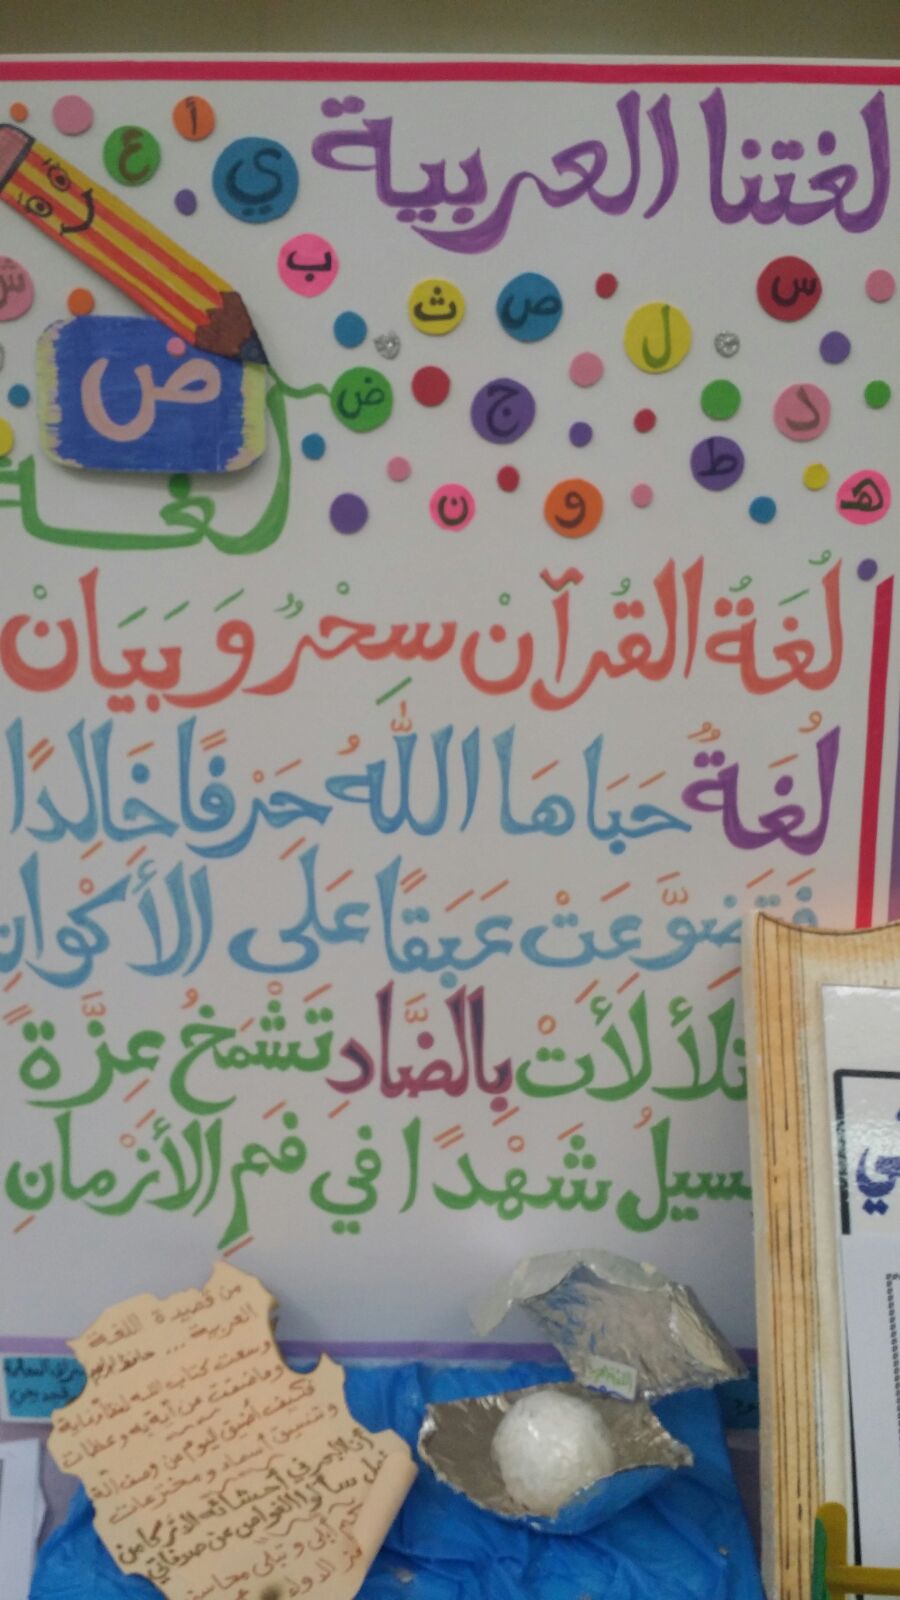 لغتنا العربية
أ
ع
ي
ب
ث
ص
س
ش
ل
ض
ض
ج
د
ط
ن
و
ه
لغة
لُغَةُ القُرآنْ سِحْرٌ وَ بَيَانْ
لُغَةٌ حَبَاهَا اللّٰهُ حَرْفًا خَالِدًا
فَتَضَوَّعَتْ عَبَقًا عَلَى الأَكْوَانِ
تلأْلَأَتْ بِالضَّادِ تَشْمَخُ عِزَّةً
سيلُ شَهْدًا في فَمِ الأَزْمانِ
من قصيدة اللغة
العربية ... حافظ ابراهيم
وسعت كتاب الله لفظا وغاية
وما ضقت عن آي به وعظات
فكيف أضيق اليوم عن وصف آلة
وتنسيق أسماء ومخترعات
أنا البحر في أحشائه الدر كامن
فهل سألوا الغواص عن صدفاتي